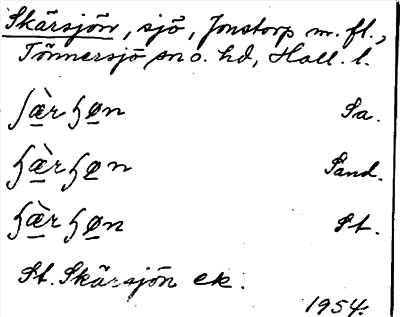 Skärsjön, sjö, Jonstorp m. fl.,
Tönnersjö sn o. hd, Hall. l.
ʃæ̀rʃøn Sa.
ɧæ̀rɧøn Sand.
ɧæ̀rɧøn St.
St. Skärsjön ek.
1954.